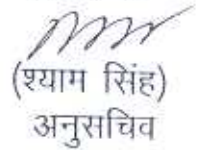 (श्याम सिंह)
अनुसचिव